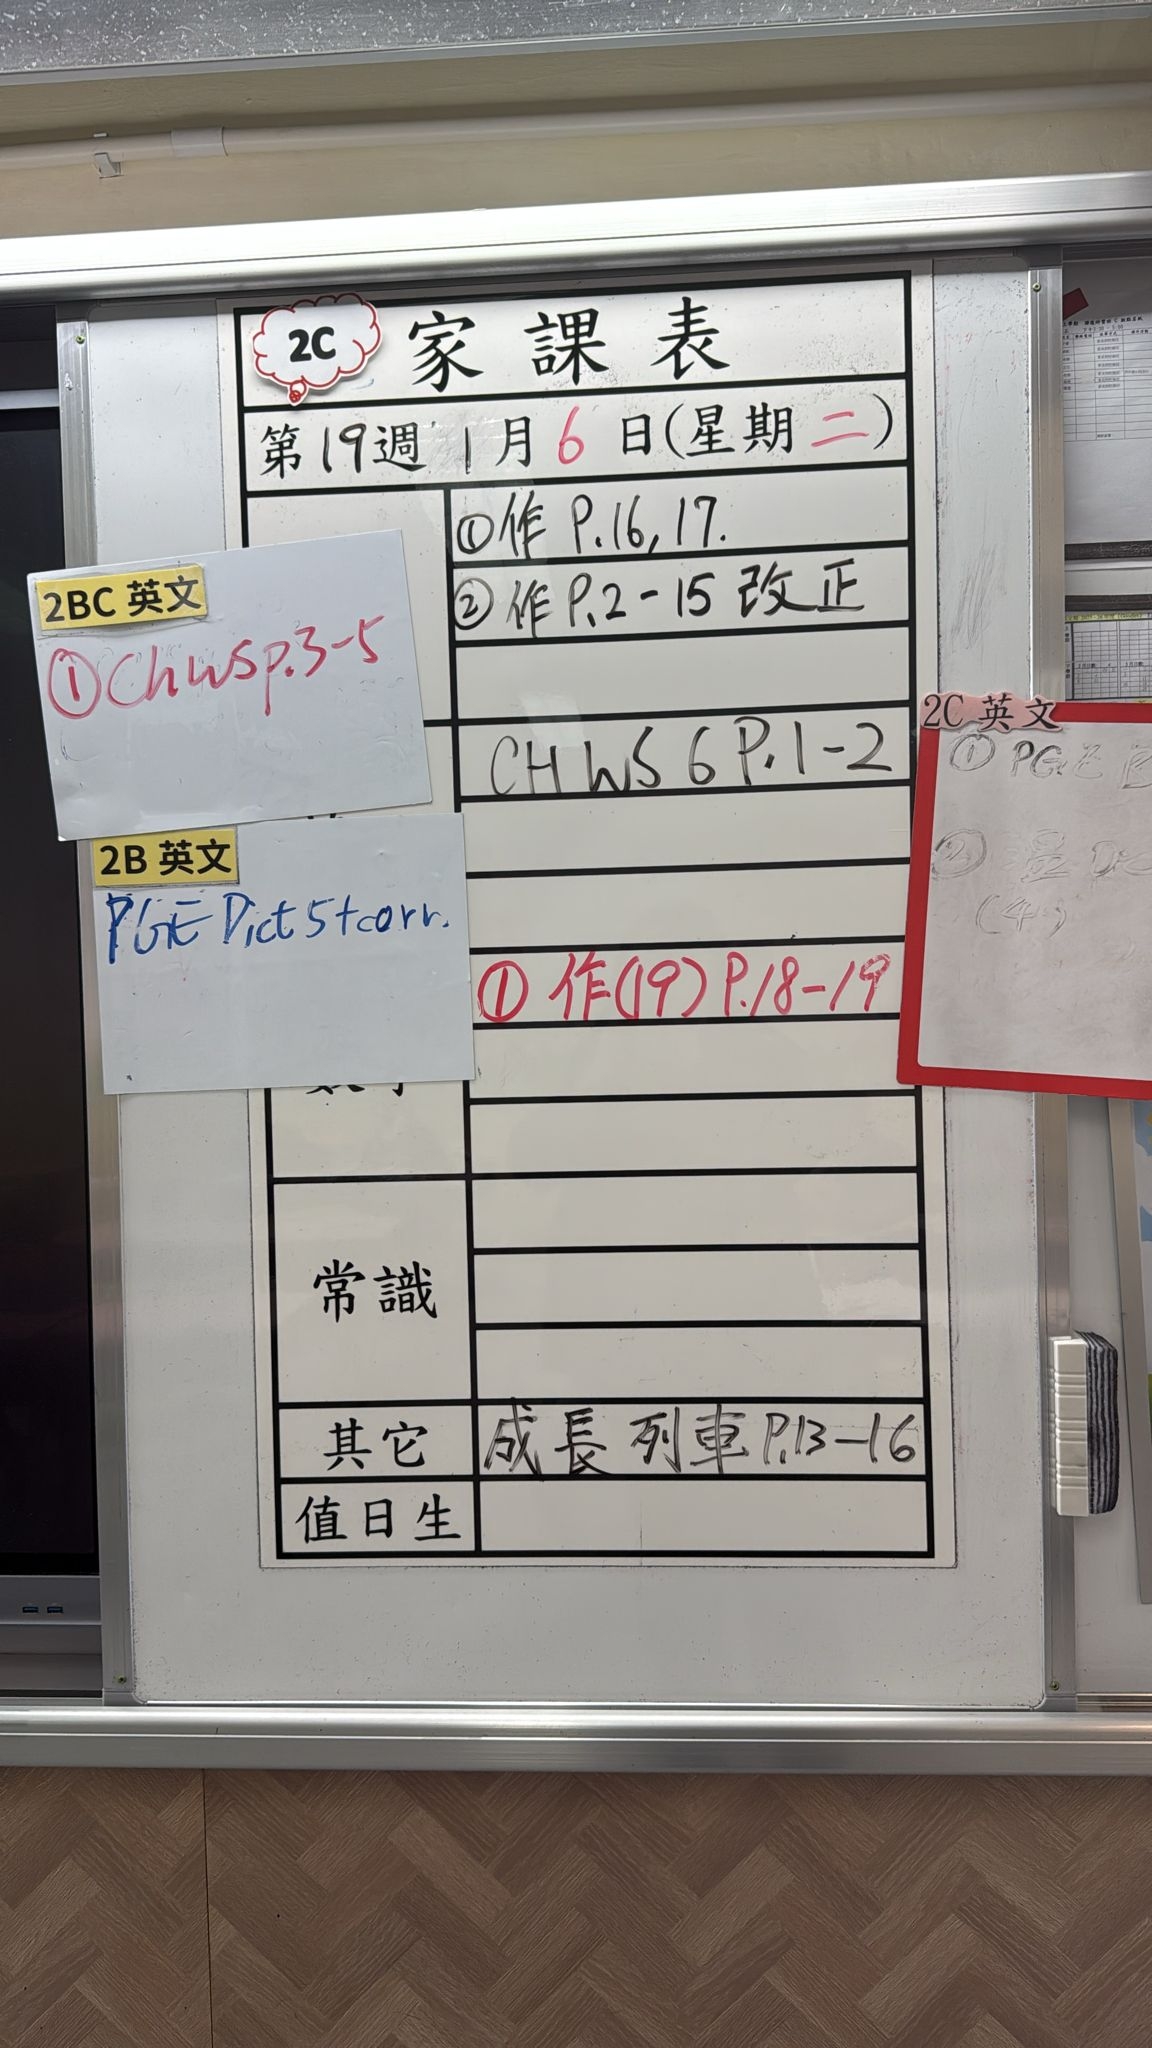 2C 家課表
第19週 1月6日(星期二)
①作 P.16,17.
②作 P.2-15 改正
2BC 英文
①Ch WS p.3-5
CH WS 6 P.1-2
2B 英文
PGE Dict 5 + corr.
①作(19) P.18-19
常識
其它 成長列車 P.13-16
值日生
2C 英文
① PGE
②